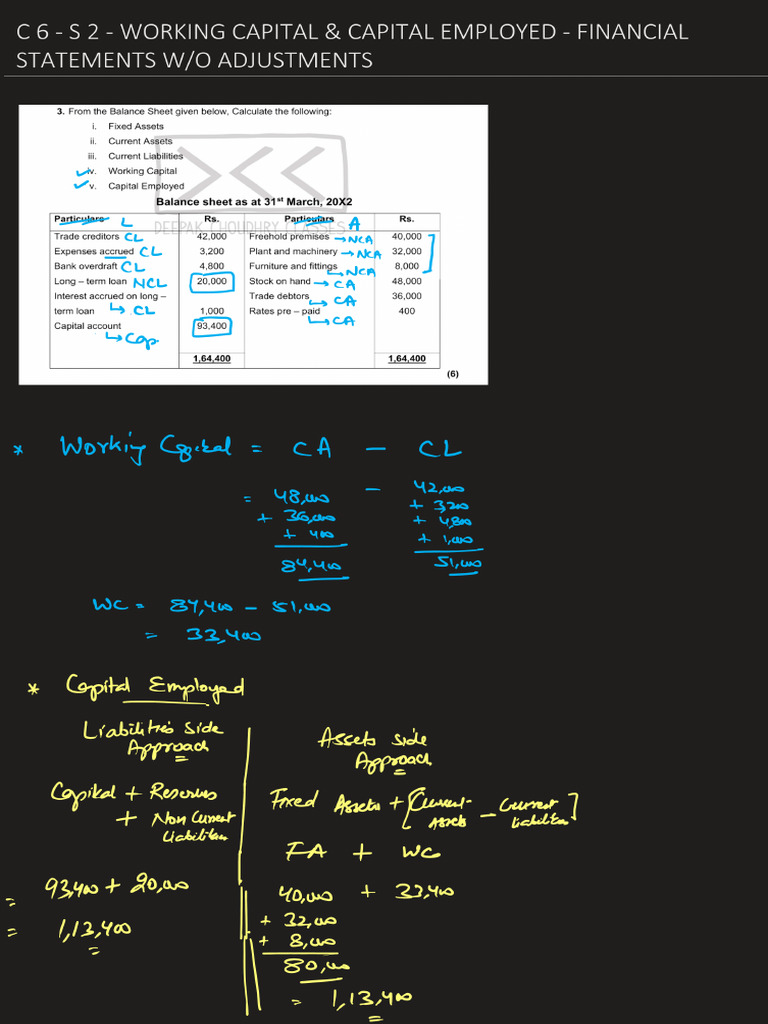 C 6 - S 2 - WORKING CAPITAL & CAPITAL EMPLOYED - FINANCIAL
STATEMENTS W/O ADJUSTMENTS
3. From the Balance Sheet given below, Calculate the following:
i. Fixed Assets
ii. Current Assets
iii. Current Liabilities
iv. Working Capital
v. Capital Employed
DEEPAK CHOUDHRY CLASSES
Balance sheet as at 31st March, 20X2
Particulars L Rs. Particulars A Rs.
Trade creditors CL 42,000 Freehold premises → NCA 40,000
Expenses accrued CL 3,200 Plant and machinery → NCA 32,000
Bank overdraft CL 4,800 Furniture and fittings → NCA 8,000
Long – term loan NCL 20,000 Stock on hand → CA 48,000
Interest accrued on long – Trade debtors → CA 36,000
term loan → CL 1,000 Rates pre – paid → CA 400
Capital account → Cap 93,400
1,64,400 1,64,400
(6)
* Working Capital = CA − CL
= 48,000 − 42,000
+ 36,000 + 3,200
+ 400 + 4,800
+ 1,000
84,400 51,000
WC = 84,400 − 51,000
= 33,400
* Capital Employed
Liabilities side
Approach
Capital + Reserves
+ Non Current
Liabilities
= 93,400 + 20,000
= 1,13,400
Assets side
Approach
Fixed Assets + [Current Assets − Current Liabilities]
FA + WC
40,000 + 33,400
+ 32,000
+ 8,000
80,000
= 1,13,400